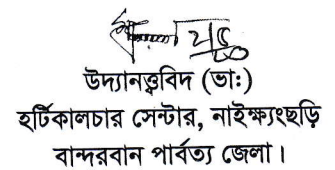 উদ্যানত্ত্ববিদ (ভাঃ)
হর্টিকালচার সেন্টার, নাইক্ষ্যংছড়ি
বান্দরবান পার্বত্য জেলা।